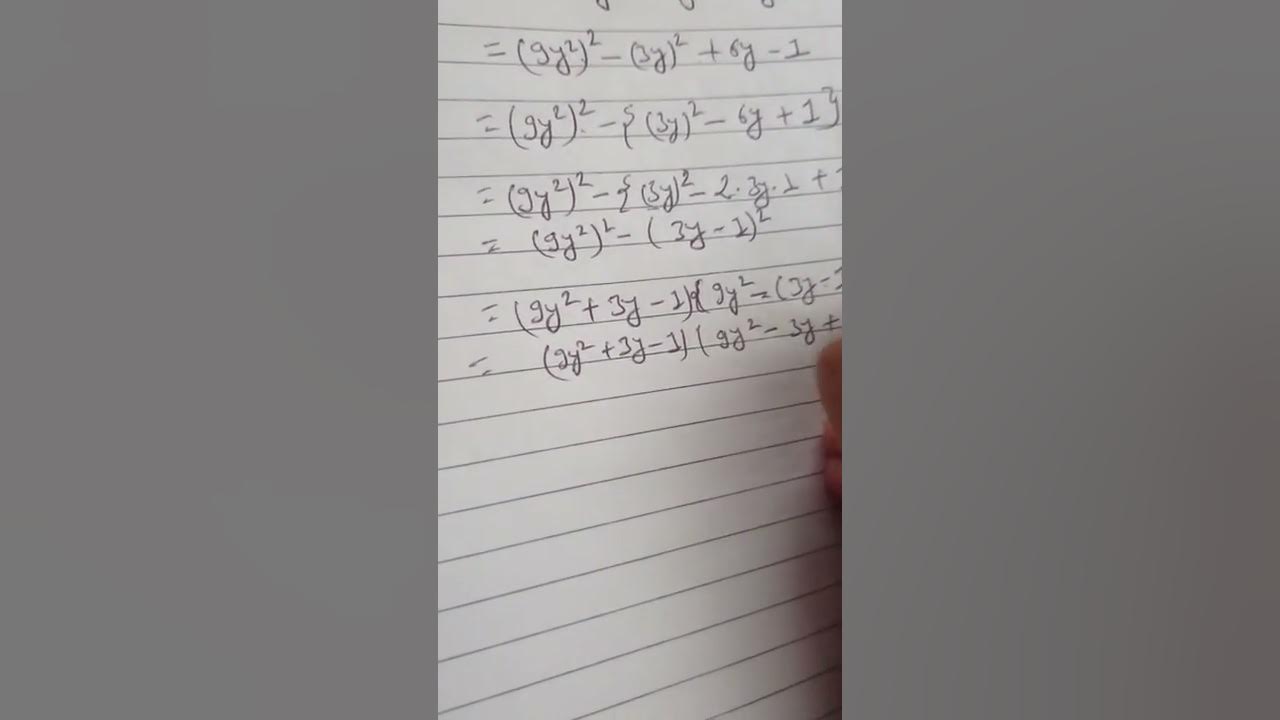 = (9y²)² - (3y)² + 6y - 1
= (9y²)² - { (3y)² - 6y + 1 }
= (9y²)² - { (3y)² - 2 · 3y · 1 +
= (9y²)² - ( 3y - 1)²
= (9y² + 3y - 1) { 9y² - (3y - 1
= (9y² + 3y - 1) ( 9y² - 3y +